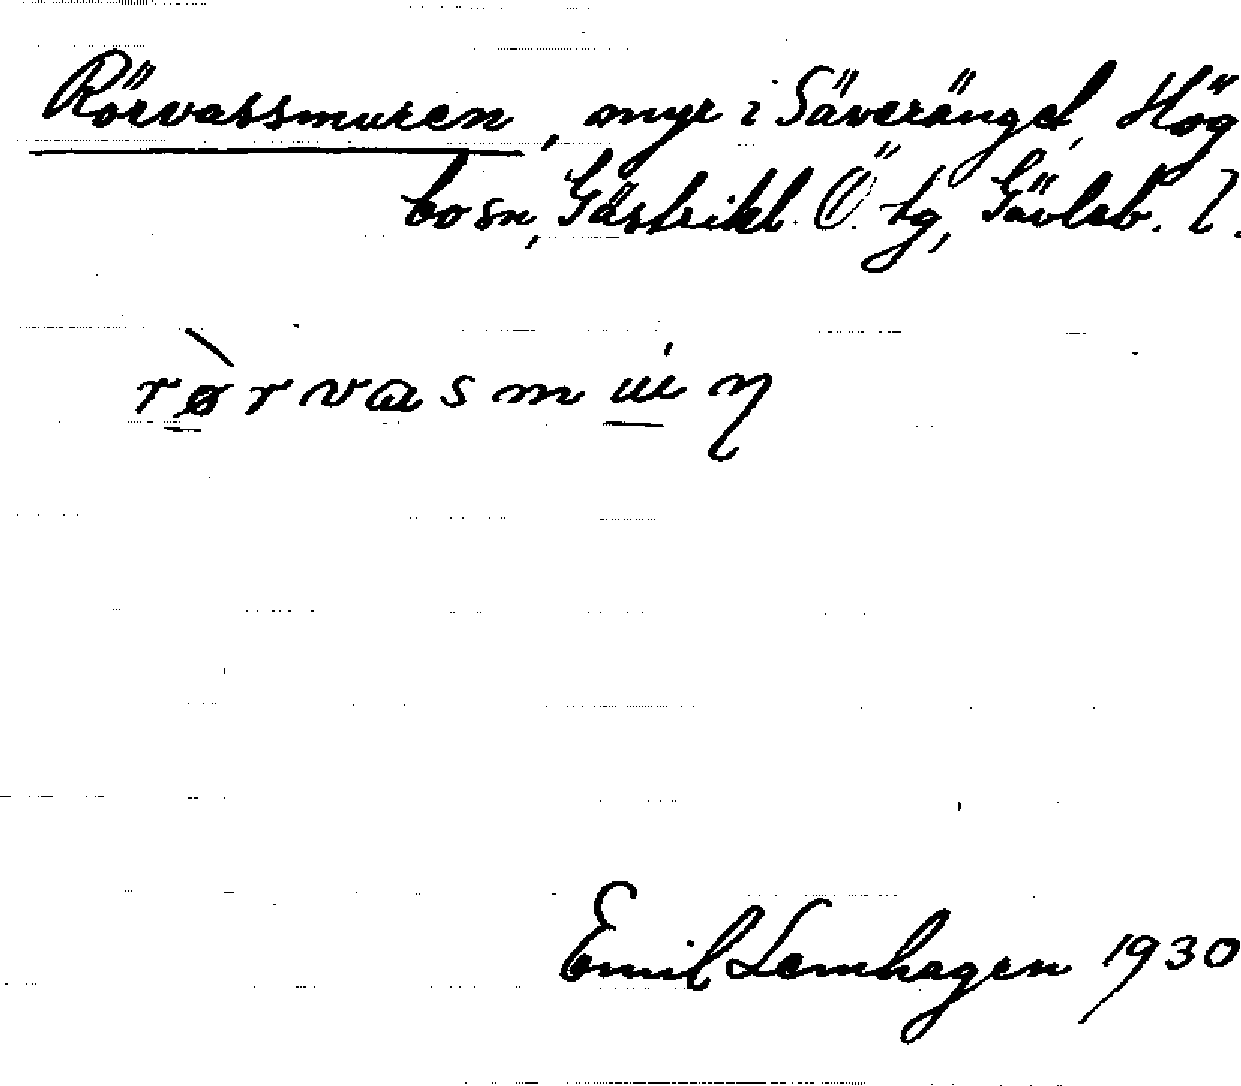 Rörvassmuren, myr i Säveränget, Hög
bo sn, Gästrikl. Ö. tg, Gävleb. l.
Emil Lemhagen 1930